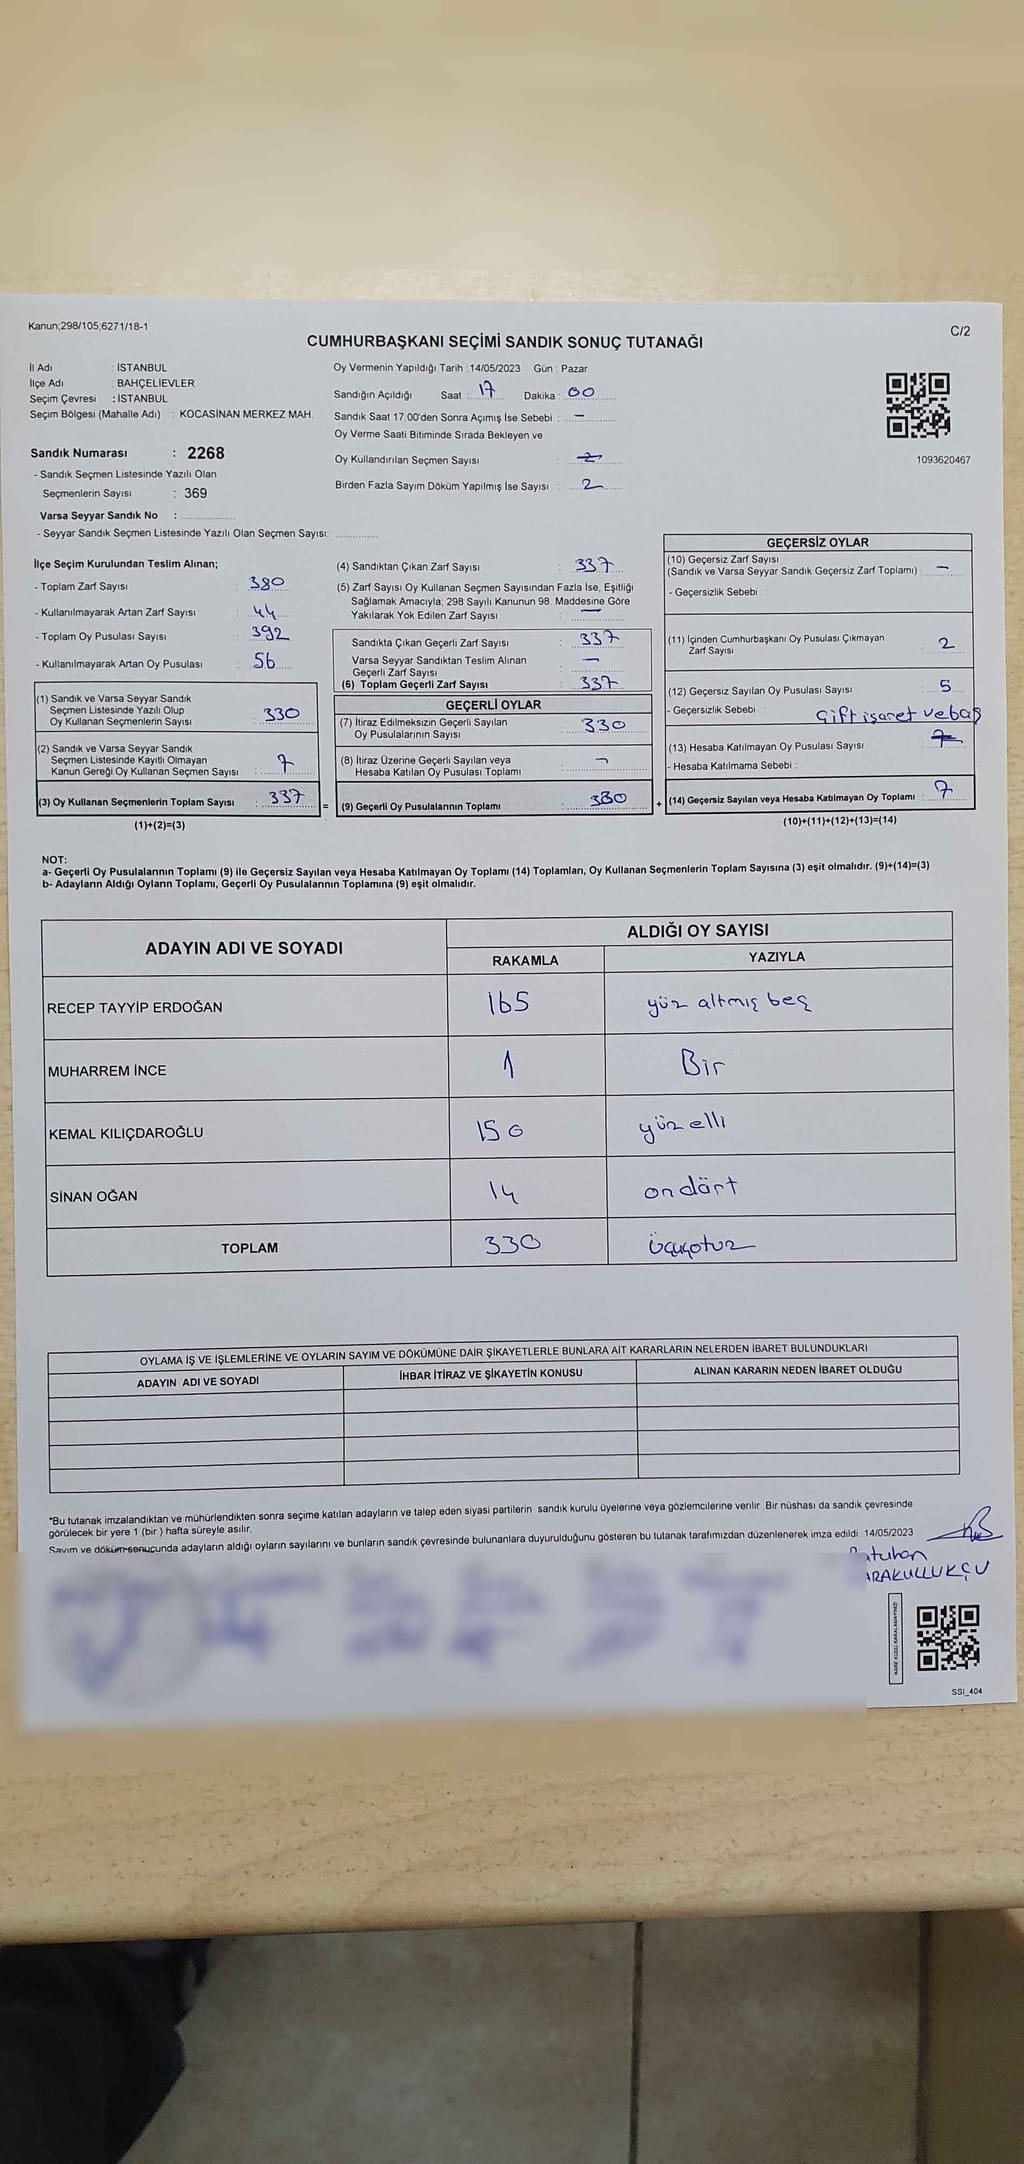 Kanun;298/105,6271/18-1
C/2
CUMHURBAŞKANI SEÇİMİ SANDIK SONUÇ TUTANAĞI
İl Adı : İSTANBUL
İlçe Adı : BAHÇELİEVLER
Seçim Çevresi : İSTANBUL
Seçim Bölgesi (Mahalle Adı) : KOCASİNAN MERKEZ MAH.
Sandık Numarası : 2268
- Sandık Seçmen Listesinde Yazılı Olan
Seçmenlerin Sayısı : 369
Varsa Seyyar Sandık No :
- Seyyar Sandık Seçmen Listesinde Yazılı Olan Seçmen Sayısı:
Oy Vermenin Yapıldığı Tarih : 14/05/2023 Gün : Pazar
Sandığın Açıldığı Saat : 17 Dakika : 00
Sandık Saat 17.00'den Sonra Açımış İse Sebebi : -
Oy Verme Saati Bitiminde Sırada Bekleyen ve
Oy Kullandırılan Seçmen Sayısı :
Birden Fazla Sayım Döküm Yapılmış İse Sayısı : 2
1093620467
İlçe Seçim Kurulundan Teslim Alınan;
- Toplam Zarf Sayısı : 380
- Kullanılmayarak Artan Zarf Sayısı : 44
- Toplam Oy Pusulası Sayısı : 392
- Kullanılmayarak Artan Oy Pusulası : 56
(1) Sandık ve Varsa Seyyar Sandık
Seçmen Listesinde Yazılı Olup
Oy Kullanan Seçmenlerin Sayısı : 330
(2) Sandık ve Varsa Seyyar Sandık
Seçmen Listesinde Kayıtlı Olmayan
Kanun Gereği Oy Kullanan Seçmen Sayısı : 7
(3) Oy Kullanan Seçmenlerin Toplam Sayısı : 337
(1)+(2)=(3)
(4) Sandıktan Çıkan Zarf Sayısı : 337
(5) Zarf Sayısı Oy Kullanan Seçmen Sayısından Fazla İse, Eşitliği
Sağlamak Amacıyla; 298 Sayılı Kanunun 98. Maddesine Göre
Yakılarak Yok Edilen Zarf Sayısı : -
Sandıkta Çıkan Geçerli Zarf Sayısı : 337
Varsa Seyyar Sandıktan Teslim Alınan
Geçerli Zarf Sayısı : -
(6) Toplam Geçerli Zarf Sayısı : 337
GEÇERLİ OYLAR
(7) İtiraz Edilmeksizin Geçerli Sayılan
Oy Pusulalarının Sayısı : 330
(8) İtiraz Üzerine Geçerli Sayılan veya
Hesaba Katılan Oy Pusulası Toplamı : -
= (9) Geçerli Oy Pusulalarının Toplamı : 330 +
GEÇERSİZ OYLAR
(10) Geçersiz Zarf Sayısı
(Sandık ve Varsa Seyyar Sandık Geçersiz Zarf Toplamı) : -
- Geçersizlik Sebebi :
(11) İçinden Cumhurbaşkanı Oy Pusulası Çıkmayan
Zarf Sayısı : 2
(12) Geçersiz Sayılan Oy Pusulası Sayısı : 5
- Geçersizlik Sebebi : Çift işaret ve boş
(13) Hesaba Katılmayan Oy Pusulası Sayısı :
- Hesaba Katılmama Sebebi :
(14) Geçersiz Sayılan veya Hesaba Katılmayan Oy Toplamı : 7
(10)+(11)+(12)+(13)=(14)
NOT:
a- Geçerli Oy Pusulalarının Toplamı (9) ile Geçersiz Sayılan veya Hesaba Katılmayan Oy Toplamı (14) Toplamları, Oy Kullanan Seçmenlerin Toplam Sayısına (3) eşit olmalıdır. (9)+(14)=(3)
b- Adayların Aldığı Oyların Toplamı, Geçerli Oy Pusulalarının Toplamına (9) eşit olmalıdır.
ADAYIN ADI VE SOYADI
ALDIĞI OY SAYISI
RAKAMLA YAZIYLA
RECEP TAYYİP ERDOĞAN 165 yüz altmış beş
MUHARREM İNCE 1 Bir
KEMAL KILIÇDAROĞLU 150 yüz elli
SİNAN OĞAN 14 on dört
TOPLAM 330
OYLAMA İŞ VE İŞLEMLERİNE VE OYLARIN SAYIM VE DÖKÜMÜNE DAİR ŞİKAYETLERLE BUNLARA AİT KARARLARIN NELERDEN İBARET BULUNDUKLARI
ADAYIN ADI VE SOYADI İHBAR İTİRAZ VE ŞİKAYETİN KONUSU ALINAN KARARIN NEDEN İBARET OLDUĞU
*Bu tutanak imzalandıktan ve mühürlendikten sonra seçime katılan adayların ve talep eden siyasi partilerin sandık kurulu üyelerine veya gözlemcilerine verilir. Bir nüshası da sandık çevresinde
görülecek bir yere 1 (bir ) hafta süreyle asılır.
Sayım ve döküm sonucunda adayların aldığı oyların sayılarını ve bunların sandık çevresinde bulunanlara duyurulduğunu gösteren bu tutanak tarafımızdan düzenlenerek imza edildi. 14/05/2023
Batuhan
KARAKULLUKÇU
SSI_404